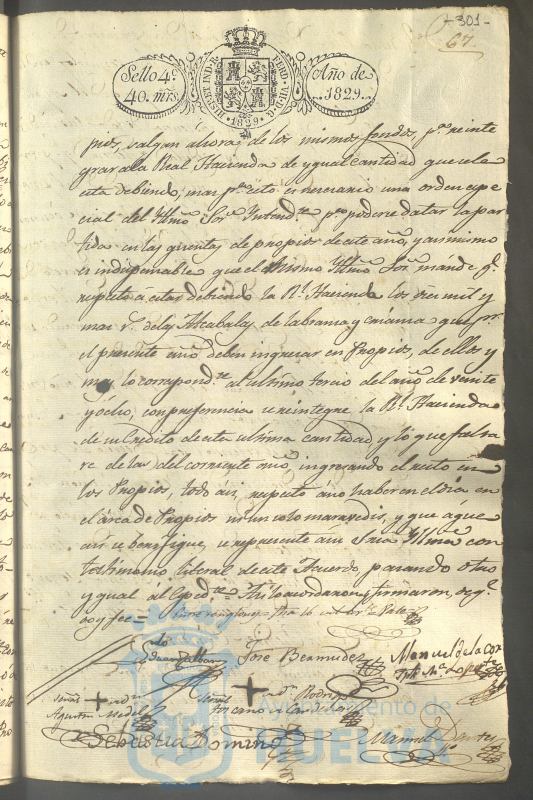 -301-
67.
Sello 4º
40. mrs.
HISP. ET IND. R.
FERD. VII. D. G.
1829
Año de
1829.
pios, valgan ahora de los mismos fondos, pª reinte
grar a la Real Hacienda de ygual cantidad que se la
esta debiendo, mas pª esto es necesario una orden espe
cial del Yllmo Sor. Yntendte. pª poderse datar la par
tida en las quentas de propios de este año, y asimismo
es indispensable que el mismo Yllmo Sor. mande qe.
respecto a estar debiendo la Rl. Hacienda los diez mil y
mas rs. de las Alcabalas, de labranza y crianza que pr.
el presente año deben ingresar en Propios, de ellos y
lo correspondte. al ultimo tercio del año de veinte
y ocho, con preferencia se reintegre la Rl. Hacienda
de su credito de esta ultima cantidad y lo que falta
re de las del corriente año, ingresando el resto en
los Propios, todo asi, respecto a no haber en el dia en
el árca de Propios ni un solo maravedis, y que a que
asi se berifique, se represente a Sria Yllma con
testimonio literal de este Acuerdo, pasando otro
y ygual al Asi lo acordaron y firmaron, de qe.
doy fee =
José Bermudez
Manuel de la Cor
te
Lopez
señal + de
Agustin
señal + de Rodrigo
Sebastian Domin
Manuel
Ayuntamiento de
HUELVA